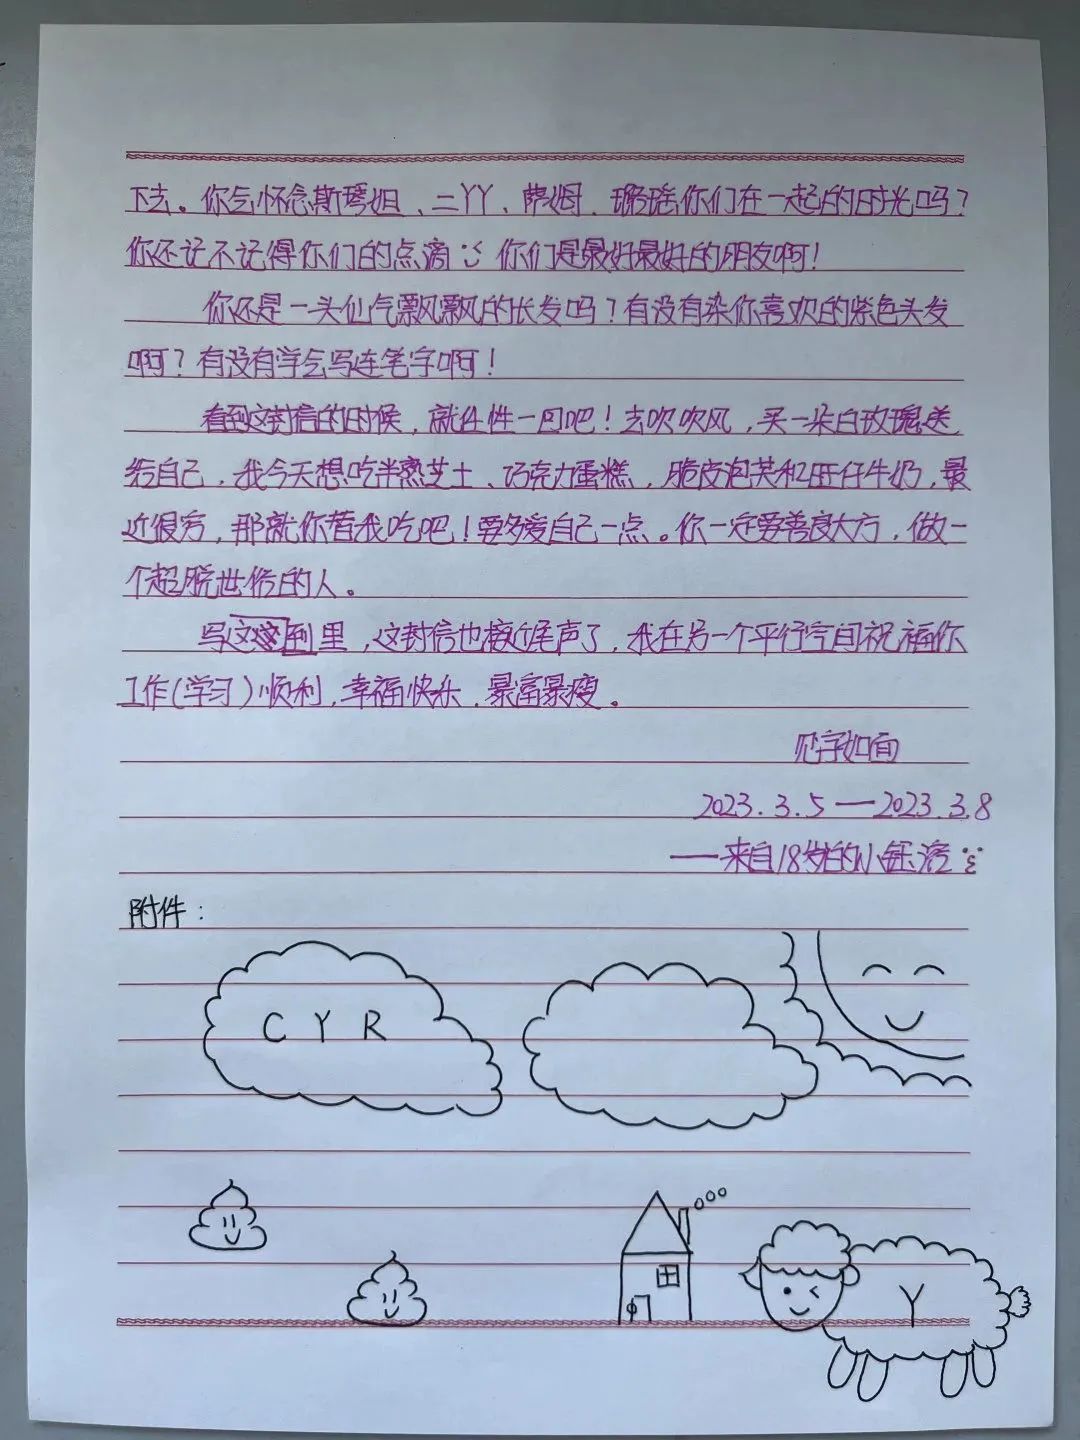 下去。你会怀念斯琴姐、二丫丫、萨姆、璐瑶你们在一起的时光吗？
你还记不记得你们的点滴 你们是最好最好的朋友啊！
你还是一头仙气飘飘的长发吗？有没有染你喜欢的紫色头发
啊？有没有学会写连笔字啊！
看到这封信的时候，就任性一回吧！去吹吹风，买一朵白玫瑰送
给自己，我今天想吃半熟芝士、巧克力蛋糕，脆皮泡芙和旺仔牛奶，最
近很穷，那就你替我吃吧！要多爱自己一点。你一定要善良大方，做一
个超脱世俗的人。
写这到里，这封信也接近尾声了，我在另一个平行空间祝福你
工作(学习)顺利，幸福快乐，暴富暴瘦。
见字如面
2023.3.5——2023.3.8
——来自18岁的小钰
附件：
C Y R
Y